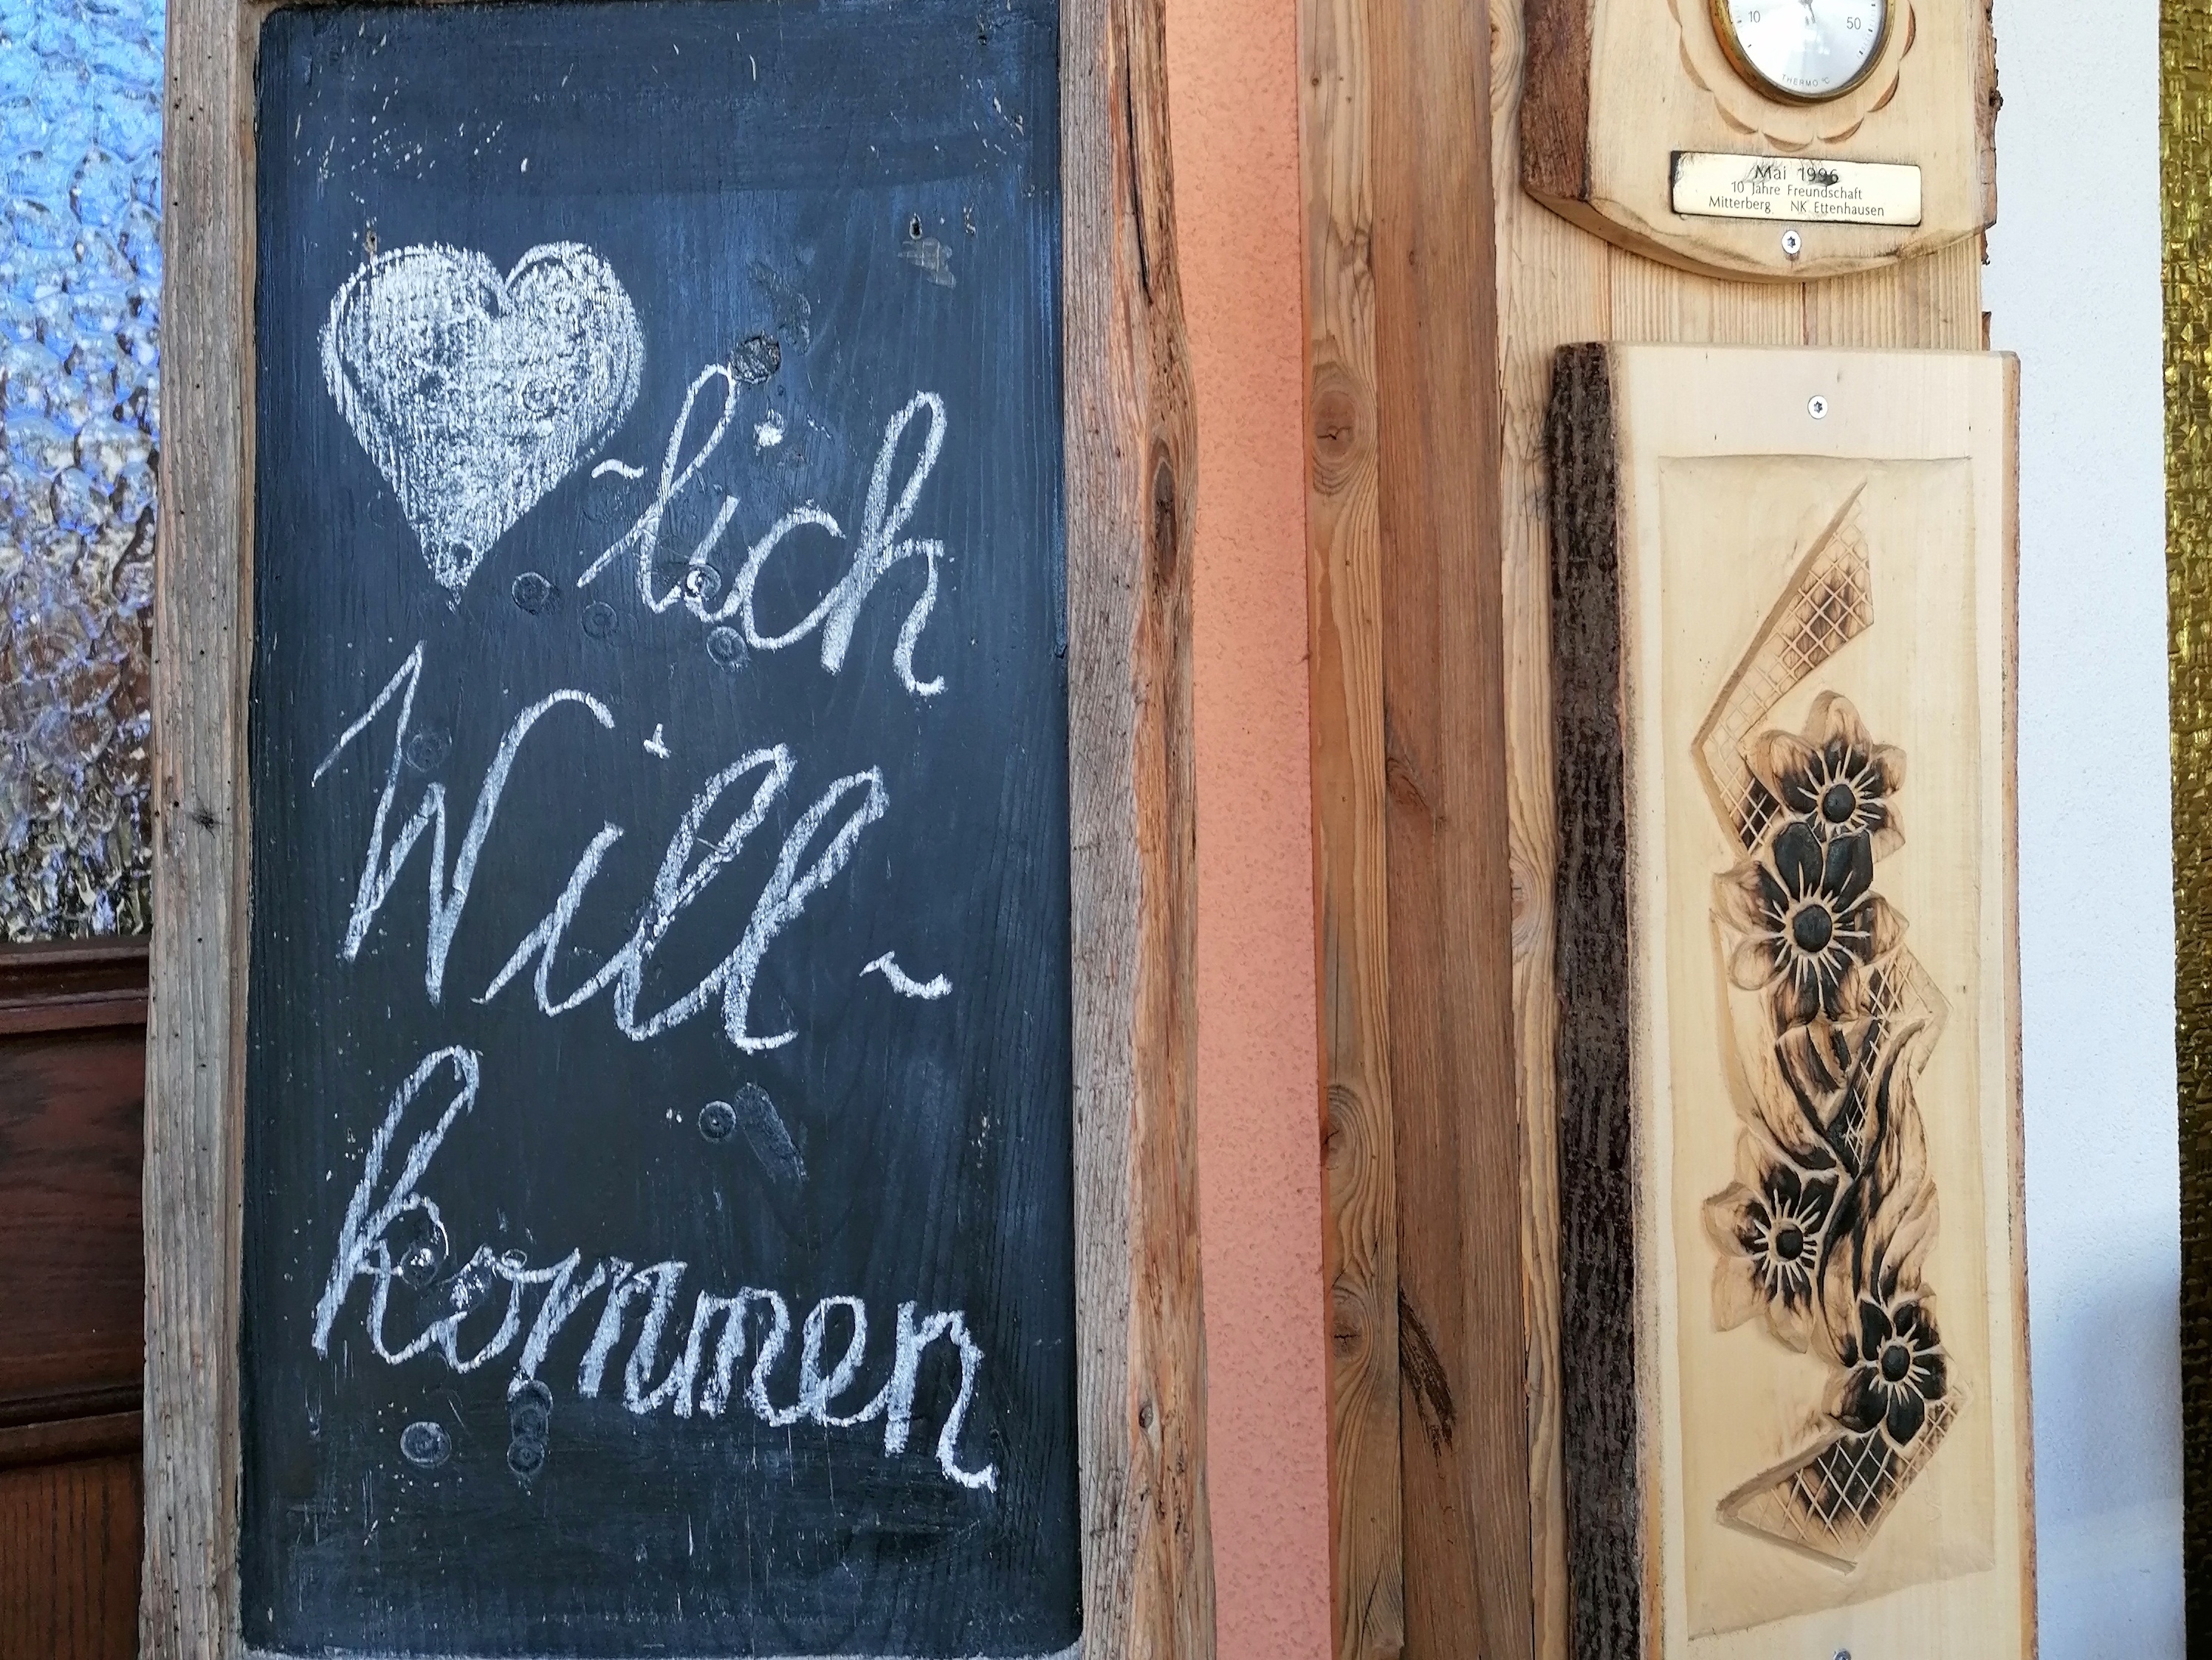 ~lich
Will~
kommen
10 50
THERMO °C
Mai 1996
10 Jahre Freundschaft
Mitterberg NK Ettenhausen